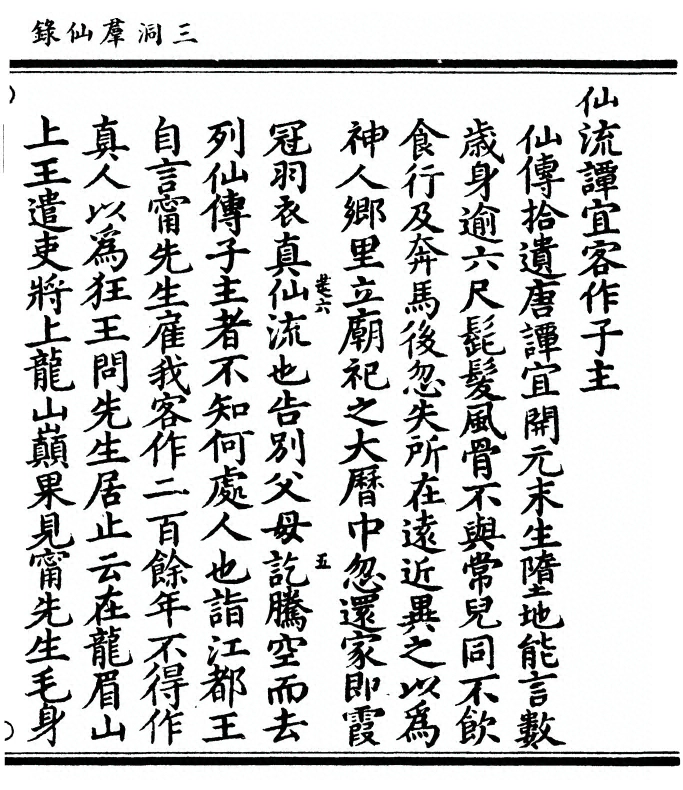 三洞羣仙錄
仙流譚宜客作子主
仙傳拾遺唐譚宜開元末生墮地能言數
歲身逾六尺髭髮風骨不與常兒同不飲
食行及奔馬後忽失所在遠近異之以為
神人鄉里立廟祀之大曆中忽還家即霞
冠羽衣真仙流也告別父母訖騰空而去
卷六
五
列仙傳子主者不知何處人也詣江都王
自言甯先生雇我客作二百餘年不得作
真人以為狂王問先生居止云在龍眉山
上王遣吏將上龍山巔果見甯先生毛身